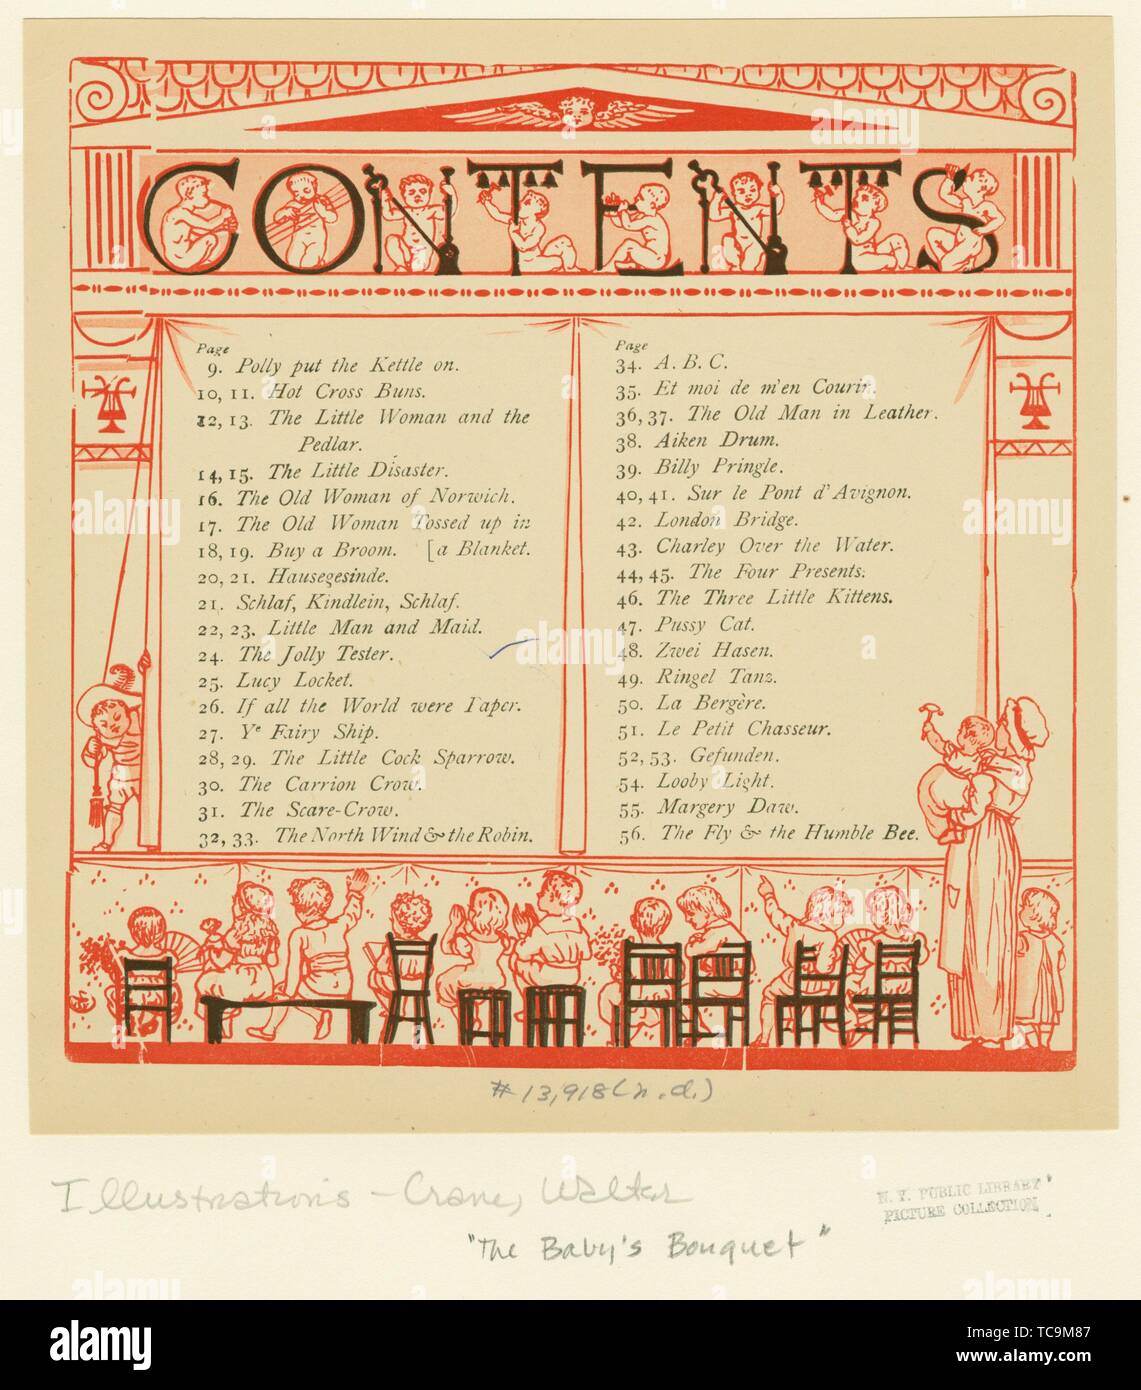 CONTENTS
Page
9. Polly put the Kettle on.
10, 11. Hot Cross Buns.
12, 13. The Little Woman and the
Pedlar.
14, 15. The Little Disaster.
16. The Old Woman of Norwich.
17. The Old Woman Tossed up in
18, 19. Buy a Broom. [a Blanket.
20, 21. Hausegesinde.
21. Schlaf, Kindlein, Schlaf.
22, 23. Little Man and Maid.
24. The Jolly Tester.
25. Lucy Locket.
26. If all the World were Paper.
27. Ye Fairy Ship.
28, 29. The Little Cock Sparrow.
30. The Carrion Crow.
31. The Scare-Crow.
32, 33. The North Wind & the Robin.
Page
34. A. B. C.
35. Et moi de m'en Courir.
36, 37. The Old Man in Leather.
38. Aiken Drum.
39. Billy Pringle.
40, 41. Sur le Pont d'Avignon.
42. London Bridge.
43. Charley Over the Water.
44, 45. The Four Presents.
46. The Three Little Kittens.
47. Pussy Cat.
48. Zwei Hasen.
49. Ringel Tanz.
50. La Bergère.
51. Le Petit Chasseur.
52, 53. Gefunden.
54. Looby Light.
55. Margery Daw.
56. The Fly & the Humble Bee.
# 13,918 (n.d.)
Illustrations - Crane, Walter
"The Baby's Bouquet"
N. Y. PUBLIC LIBRARY
PICTURE COLLECTION
alamy
Image ID: TC9M87
www.alamy.com